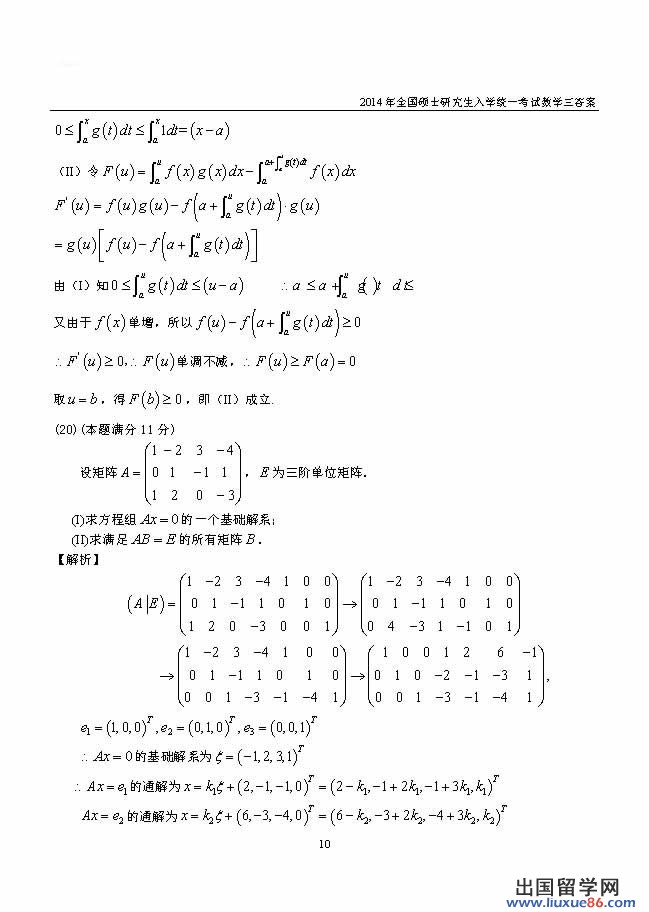 2014年全国硕士研究生入学统一考试数学三答案
0≤∫ₐˣg(t)dt≤∫ₐˣ1dt=(x−a)
(II) 令F(u)=∫ₐᵘf(x)g(x)dx−∫ₐ^{a+∫ₐᵘg(t)dt}f(x)dx
F'(u)=f(u)g(u)−f(a+∫ₐᵘg(t)dt)·g(u)
=g(u)[f(u)−f(a+∫ₐᵘg(t)dt)]
由(I)知0≤∫ₐᵘg(t)dt≤(u−a) ∴a≤a+∫ₐᵘg( )t dt≤
又由于f(x)单增，所以f(u)−f(a+∫ₐᵘg(t)dt)≥0
∴F'(u)≥0,∴F(u)单调不减，∴F(u)≥F(a)=0
取u=b，得F(b)≥0，即(II)成立.
(20)(本题满分11分)
1 −2 3 −4
设矩阵A= 0 1 −1 1 ，E为三阶单位矩阵.
1 2 0 −3
(I)求方程组Ax=0的一个基础解系;
(II)求满足AB=E的所有矩阵B.
【解析】
1 −2 3 −4 1 0 0 1 −2 3 −4 1 0 0
(A|E)= 0 1 −1 1 0 1 0 → 0 1 −1 1 0 1 0
1 2 0 −3 0 0 1 0 4 −3 1 −1 0 1
1 −2 3 −4 1 0 0 1 0 0 1 2 6 −1
→ 0 1 −1 1 0 1 0 → 0 1 0 −2 −1 −3 1 ,
0 0 1 −3 −1 −4 1 0 0 1 −3 −1 −4 1
e₁=(1,0,0)ᵀ,e₂=(0,1,0)ᵀ,e₃=(0,0,1)ᵀ
∴Ax=0的基础解系为ζ=(−1,2,3,1)ᵀ
∴Ax=e₁的通解为x=k₁ζ+(2,−1,−1,0)ᵀ=(2−k₁,−1+2k₁,−1+3k₁,k₁)ᵀ
Ax=e₂的通解为x=k₂ζ+(6,−3,−4,0)ᵀ=(6−k₂,−3+2k₂,−4+3k₂,k₂)ᵀ
10
出国留学网
www.liuxue86.com